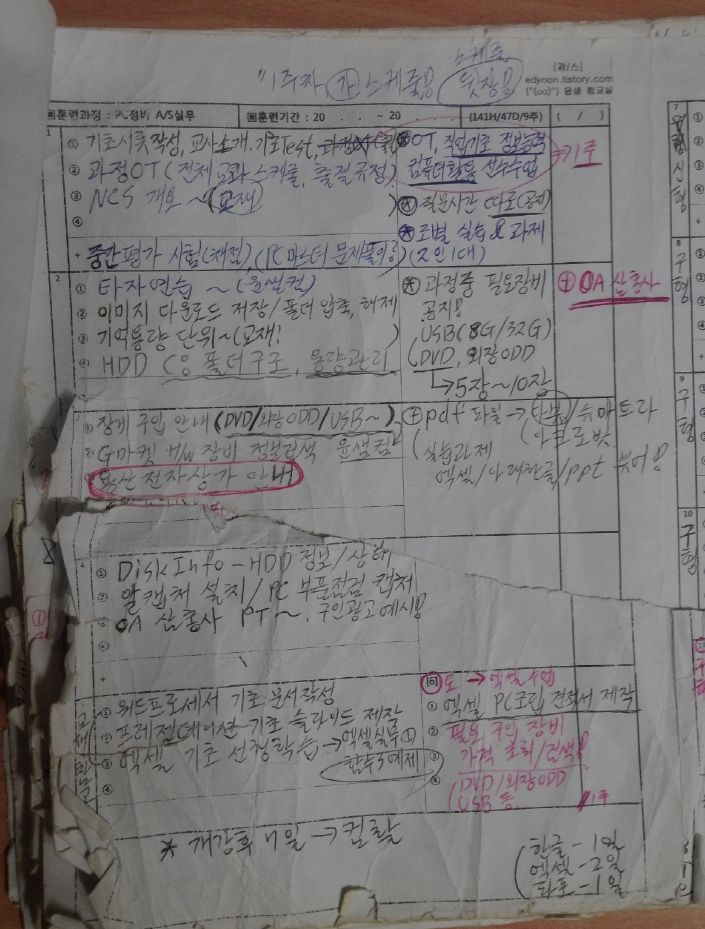 스케줄
"1주차 가 스케줄!! 특강!!
[감/스]
edyoon.tistory.com
("(oo)" 윤샘 컴교실
▣훈련과정 : PC정비 A/S실무 ▣훈련기간 : 20 . . ~ 20 . . (141H/47D/9주) ( / )
1
① 기초서류작성, 교사소개, 기초Test,
② 과정OT (전체 교과 스케줄, 출결규정)
③ NCS 개요 ~ (교재 )
④
+ 중간평가 시험(채점), (PC마스터 문제풀이용)
OT, 직업기초 정보능력
컴퓨터활용 선수수업
→ 1주
* 질문시간 따로(공지)
* 조별 실습 & 과제
(2인1대)
2
① 타자연습 ~ (윤샘컴)
② 이미지 다운로드 저장/폴더 압축, 해제
③ 기억용량 단위~(교재! )
④ HDD C:\ 폴더구조, 용량관리
* 과정중 필요장비
공지!
USB(8G/32G)
(DVD, 외장ODD
→5장~10장
+ OA 실종사
① 장비 구입 안내 (DVD/외장ODD/USB~)
② G마켓 H/W 장비 정보검색 윤샘컴
용산전자상가 안내
+ pdf 파일 →
(실습과제
엑셀/아래한글/ppt
① DiskInfo - HDD 정보/상태
② 알캡처 설치/PC 부품점검 캡처
③ OA 실종사 PT ~. 구인광고예시!
④
+
① 워드프로세서 기초 문서작성
② 프레젠테이션 기초 슬라이드 제작
③ 엑셀 기초 선행학습 → 엑셀실무①
④ 함수3예제
[6]
토 → 엑셀수업
① 엑셀 PC조립 견적서 제작
② 필요 구입 장비
③ 가격 조회/검색!
④ (DVD/외장ODD
USB 등
1주
* 개강후 4일 → 컴활
한글 - 1일
엑셀 - 2일
파포 - 1일
7
①
②
③
④
8
구형
9
구형
10
구형